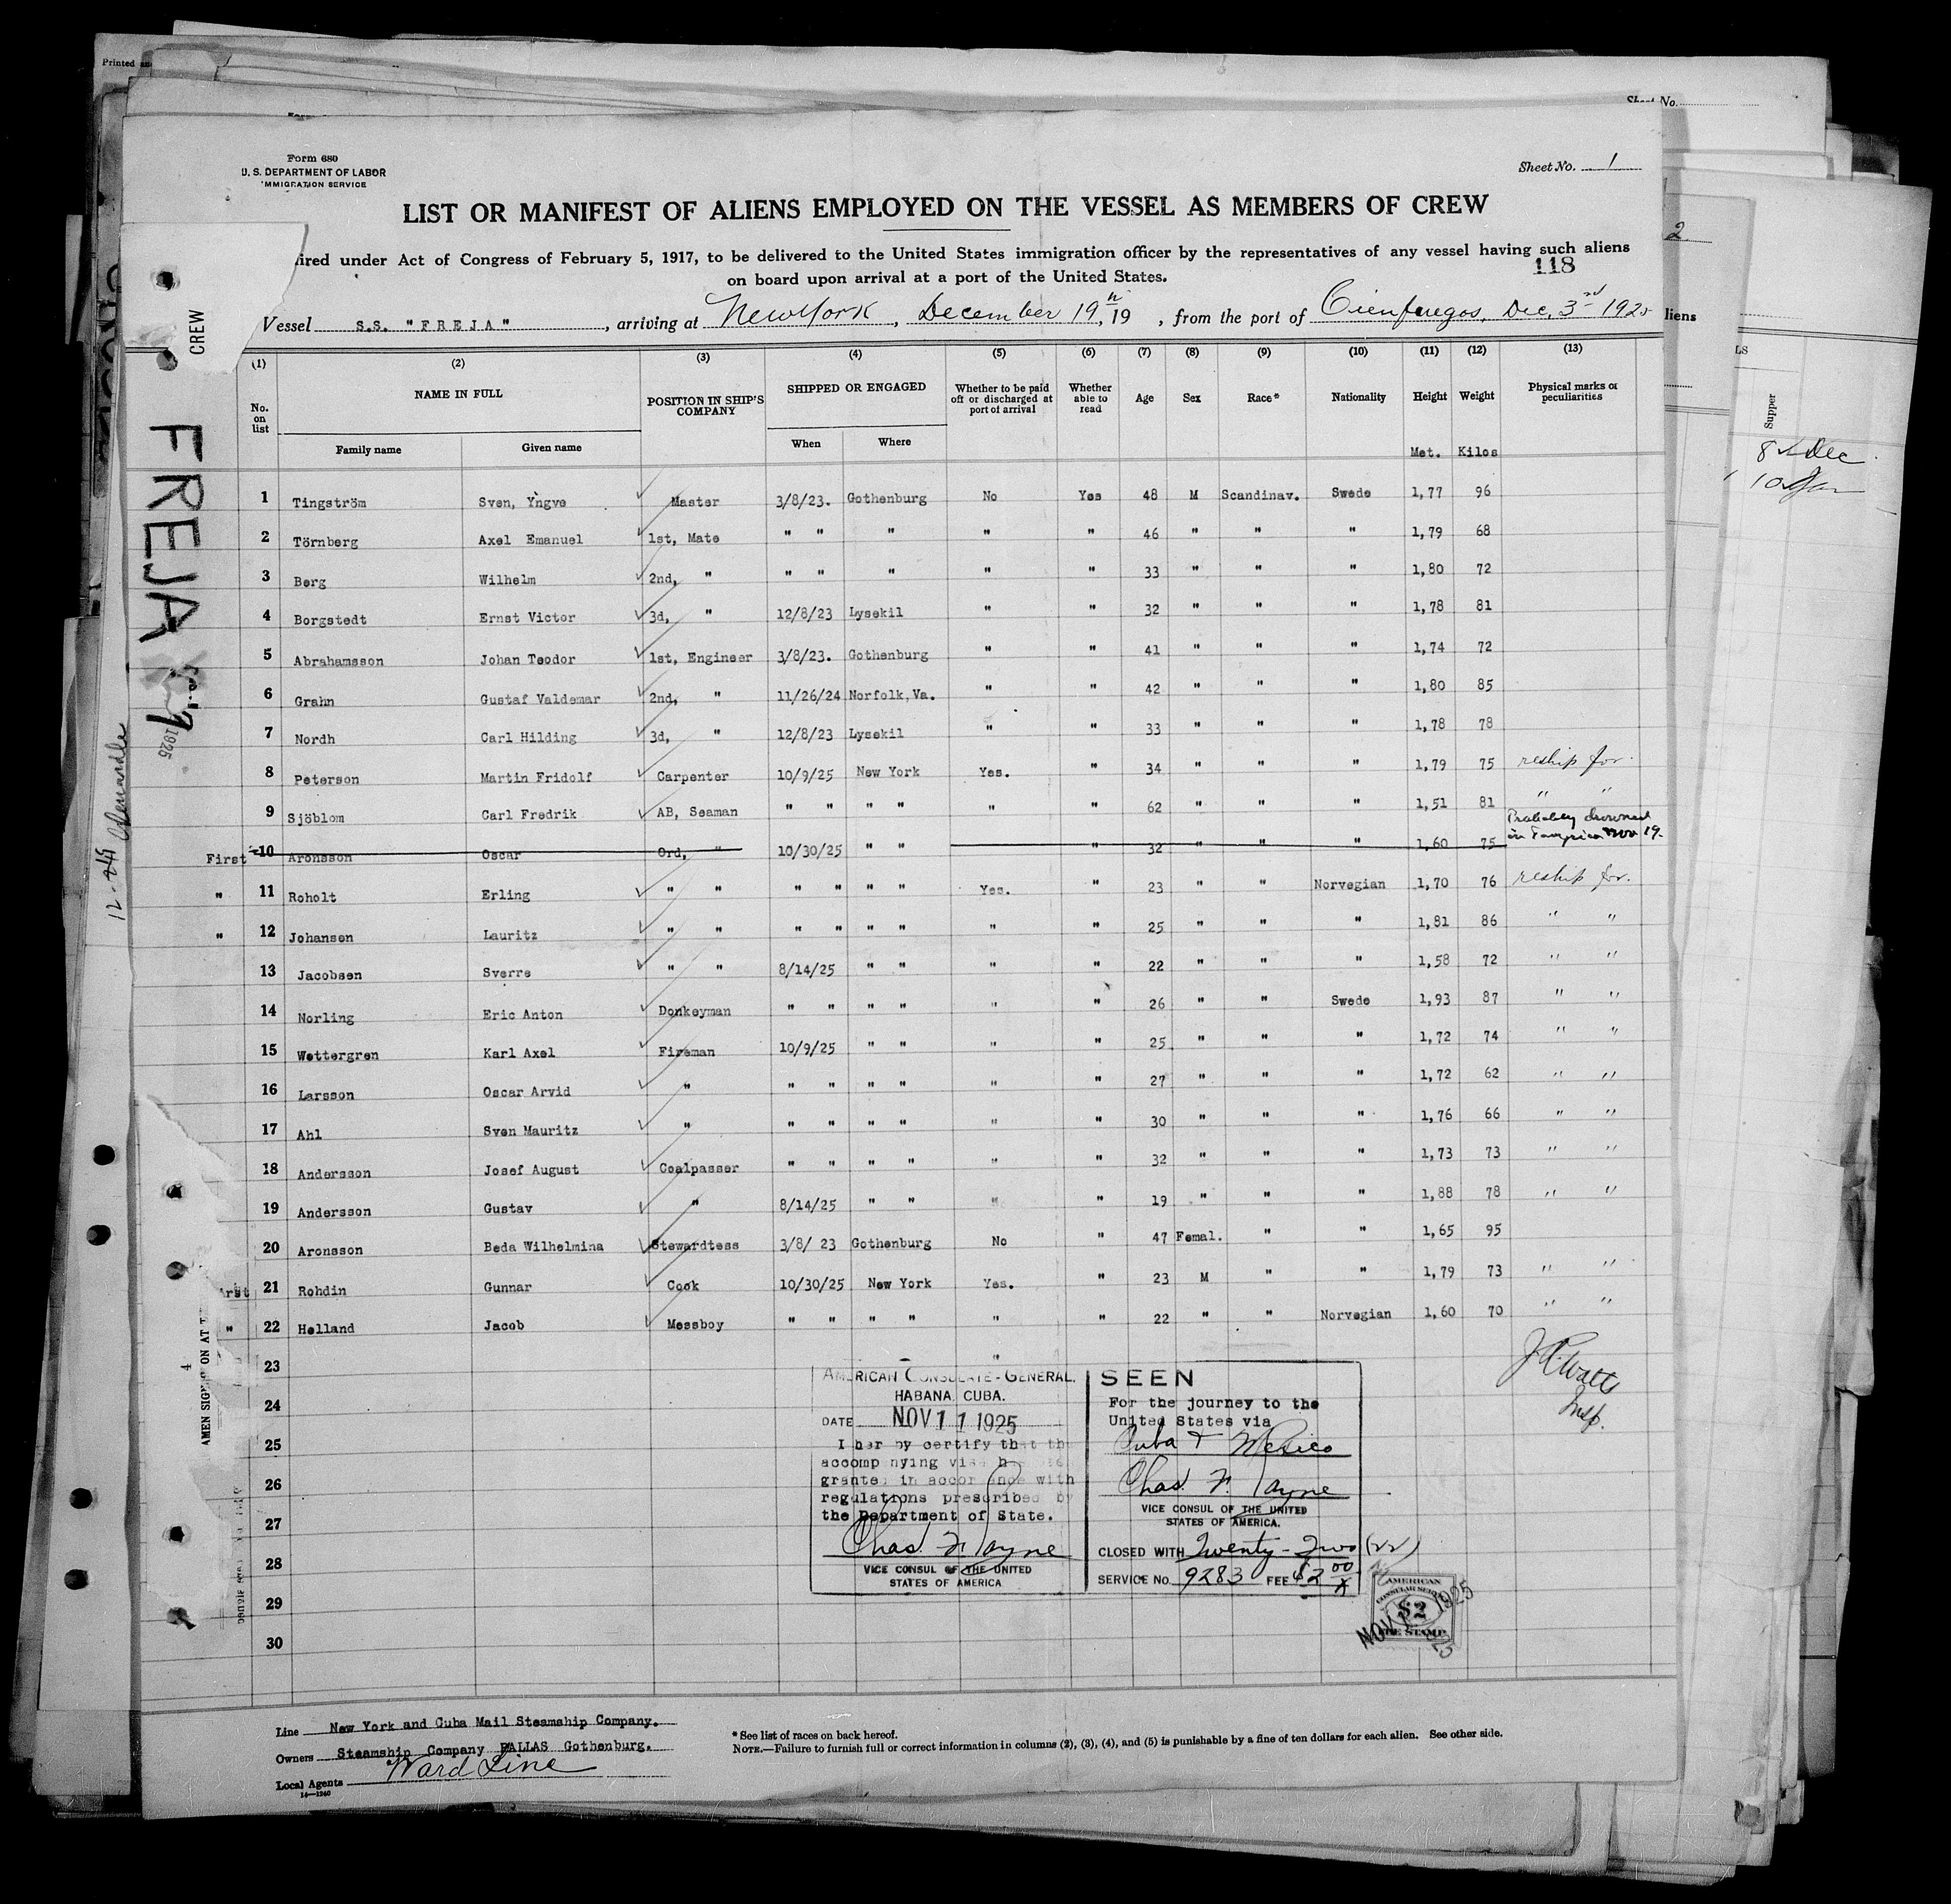 Printed an
Sheet No.
Form 680
U. S. DEPARTMENT OF LABOR
IMMIGRATION SERVICE
Sheet No. 1
LIST OR MANIFEST OF ALIENS EMPLOYED ON THE VESSEL AS MEMBERS OF CREW
ired under Act of Congress of February 5, 1917, to be delivered to the United States immigration officer by the representatives of any vessel having such aliens
on board upon arrival at a port of the United States.
118
2
Vessel S.S. "FREJA", arriving at New York, December 19th, 19 , from the port of Cienfuegos, Dec, 3rd 1925
liens
CREW
FREJA
1925
(1) (2) (3) (4) (5) (6) (7) (8) (9) (10) (11) (12) (13)
No. on list NAME IN FULL POSITION IN SHIP'S COMPANY SHIPPED OR ENGAGED Whether to be paid off or discharged at port of arrival Whether able to read Age Sex Race* Nationality Height Weight Physical marks or peculiarities
Family name Given name When Where Met. Kilos
Supper
8 Dec
1 Tingström Sven, Yngve Master 3/8/23. Gothenburg No Yes 48 M Scandinav. Swede 1,77 96
2 Törnberg Axel Emanuel 1st, Mate " " " " " 46 " " " 1,79 68
3 Berg Wilhelm 2nd, " " " " " " 33 " " " 1,80 72
4 Borgstedt Ernst Victor 3d, " 12/8/23 Lysekil " " 32 " " " 1,78 81
5 Abrahamsson Johan Teodor 1st, Engineer 3/8/23. Gothenburg " " 41 " " " 1,74 72
6 Grahn Gustaf Valdemar 2nd, " 11/26/24 Norfolk,Va. " " 42 " " " 1,80 85
7 Nordh Carl Hilding 3d, " 12/8/23 Lysekil " " 33 " " " 1,78 78
8 Peterson Martin Fridolf Carpenter 10/9/25 New York Yes. " 34 " " " 1,79 75 reship for.
9 Sjöblom Carl Fredrik AB, Seaman " " " " " " 62 " " " 1,51 81 " "
First 10 Aronsson Oscar Ord, " 10/30/25 " " " 32 " " " 1,60 75 Probably drowned in Tampico Nov 19.
" 11 Roholt Erling " " " " " " Yes. " 23 " " Norwegian 1,70 76 reship for.
" 12 Johansen Lauritz " " " " " " " " 25 " " " 1,81 86 " "
13 Jacobsen Sverre " " 8/14/25 " " " " 22 " " " 1,58 72 " "
14 Norling Eric Anton Donkeyman " " " " " " 26 " " Swede 1,93 87 " "
15 Wettergren Karl Axel Fireman 10/9/25 " " " " 25 " " " 1,72 74 " "
16 Larsson Oscar Arvid " " " " " " " 27 " " " 1,72 62 " "
17 Ahl Sven Mauritz " " " " " " " 30 " " " 1,76 66 " "
18 Andersson Josef August Coalpasser " " " " " " 32 " " " 1,73 73 " "
19 Andersson Gustav " 8/14/25 " " " " 19 " " " 1,88 78 " "
20 Aronsson Beda Wilhelmina Stewardtess 3/8/ 23 Gothenburg No " 47 Femal. " " 1,65 95
irst 21 Rohdin Gunnar Cook 10/30/25 New York Yes. " 23 M " " 1,79 73 " "
" 22 Helland Jacob Messboy " " " " " " 22 " " Norwegian 1,60 70 " "
23 "
24
25
26
27
28
29
30
J.C. Watts
Insp.
AMEN SIGN ON AT
4
AMERICAN CONSULATE-GENERAL.
HABANA, CUBA.
DATE NOV 11 1925
I her by certify that th
accomp nying visa h
grante in accor ance with
regulations prescribed by
the Department of State.
Chas. F. Payne
VICE CONSUL OF THE UNITED
STATES OF AMERICA
SEEN
For the journey to the
United States via
Cuba & Mexico
Chas. F. Payne
VICE CONSUL OF THE UNITED
STATES OF AMERICA.
CLOSED WITH Twenty-Two (22)
SERVICE No. 9283 FEE $2 00
AMERICAN
CONSULAR SERVICE
$2
FEE STAMP
NOV 1925
Line New York and Cuba Mail Steamship Company.
Owners Steamship Company PALLAS Gothenburg.
Local Agents Ward Line
14—1240
* See list of races on back hereof.
NOTE.—Failure to furnish full or correct information in columns (2), (3), (4), and (5) is punishable by a fine of ten dollars for each alien. See other side.